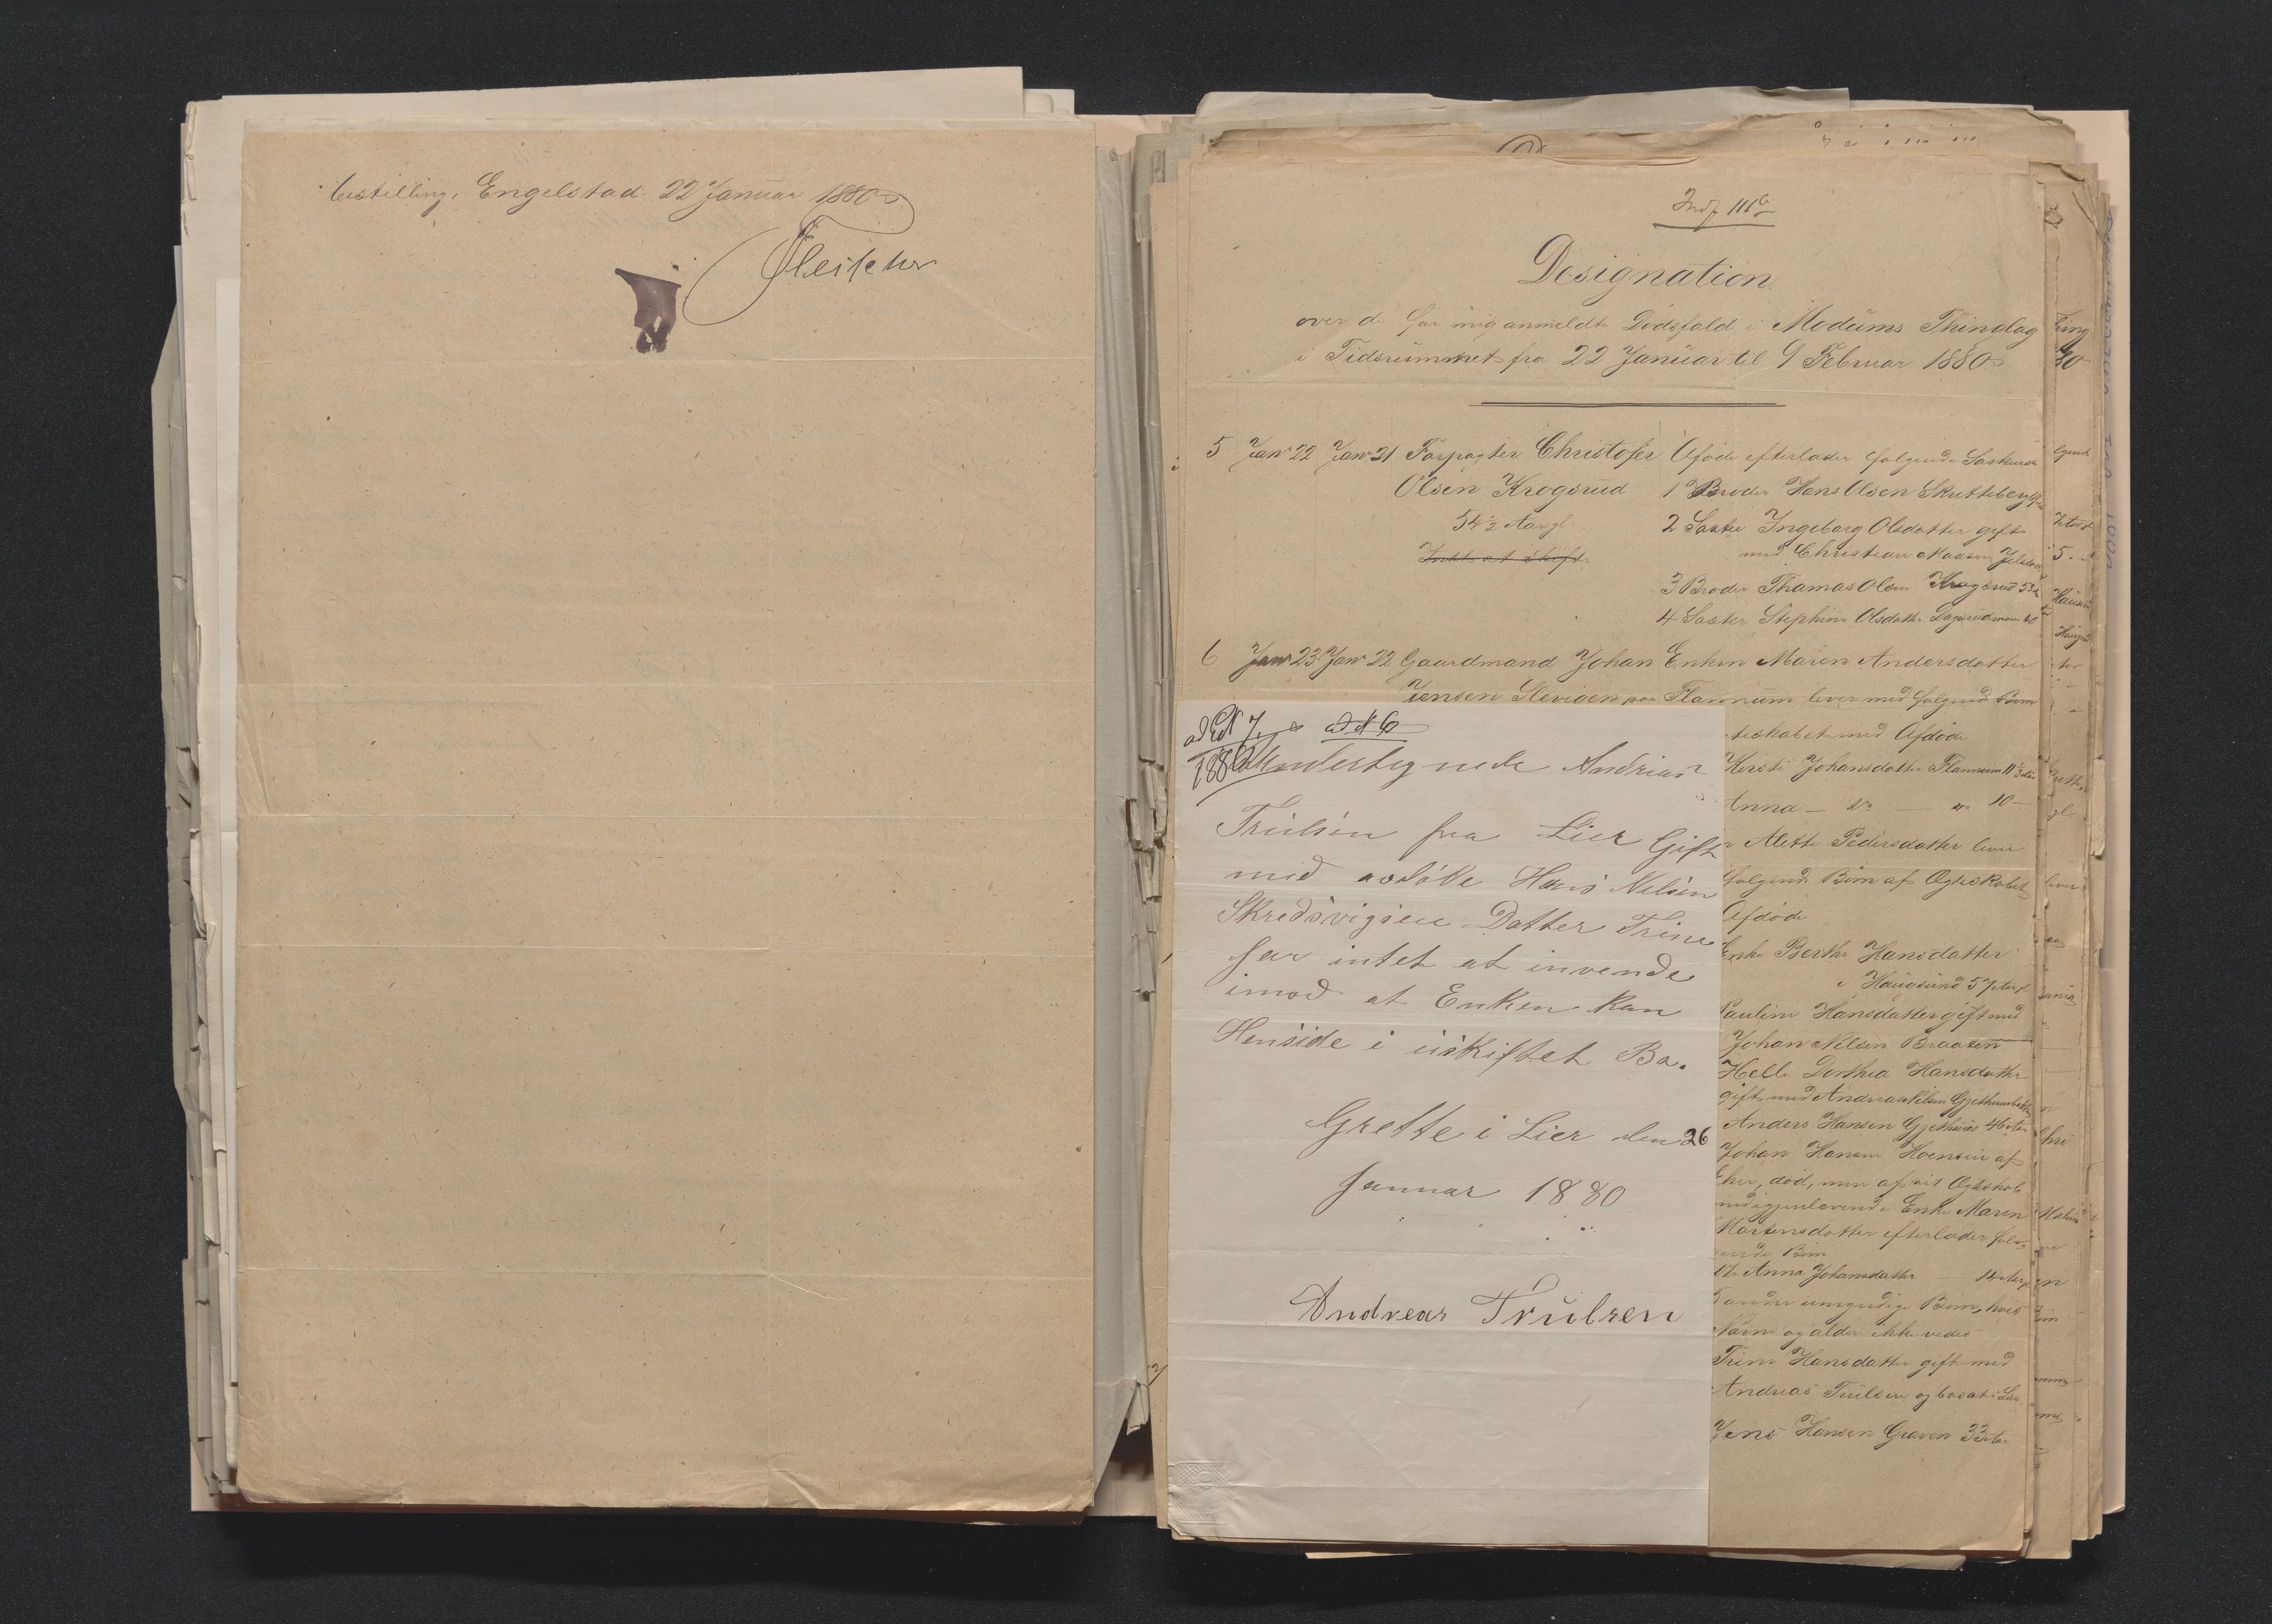 bestilling, Engelstad 22 Januar 1880
Fleischer
Designation
over de for mig anmeldte Dødsfald i Modums Thinglag
i Tidsrummet fra 22 Januar til 9 Februar 1880
5 Janr 22 Janr 21 Forpagter Christofer Aføde efterlader følgende Søskende
Olsen Krogsrud 1 Broder Hans Olsen Skutteberg
54½ Aar gl. 2 Søster Ingeborg Olsdatter gift
Intet at skift. med Christian Madsen
3 Broder Thomas Olsen Krogsrud 53
4 Søster Stephine Olsdatter 40
6 Janr 23 Janr 22 Gaardmand Johan Enken Maren Andersdatter
Jensen paa Flannum lever med følgende Børn
ad N 7. ad N 6
1880
Undertegnede Andrias
Trulsen fra Lier Gift
med avdøde Hans Nelsen
Skredsvigsen Datter Trine
har intet at invende
imod at Enken kan
Henside i uskiftet Bo.
Grette i Lier den 26
Januar 1880
Andreas Trulsen
teskabet med Afdøde
Kersti Johansdatter Flannum 11½ Aar
Anna — do — " 10 —
Mette Pedersdatter lever
følgende Børn af Ægteskabet
Afdøde
Enke Berthe Hansdatter
i Haugsund 57 Aar
Pauline Hansdatter gift med
Johan Nelsen Braaten
Helle Dorthea Hansdatter
gift med Andreas Nilsen
Anders Hansen Gjethuus 46 Aar
Johan Hansen Hoenseie af
Eker, død, men af sit Ægteskab
med igjenlevende Enke Maren
Mortensdatter efterlader føl-
gende Børn
Anna Johansdatter 14 Aar
andre umyndige Børn, hvis
Navne og alder ikke vides
Trine Hansdatter gift med
Andreas Trulsen og bosat i Lier
Jens Hansen Graven 33 Aar